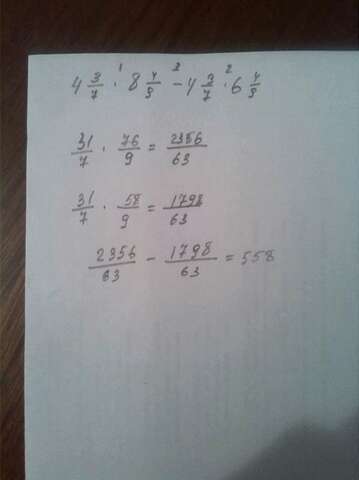 4 3/7 ·¹ 8 4/9 -³ 4 3/7 ·² 6 4/9
31/7 · 76/9 = 2356/63
31/7 · 58/9 = 1798/63
2356/63 - 1798/63 = 558